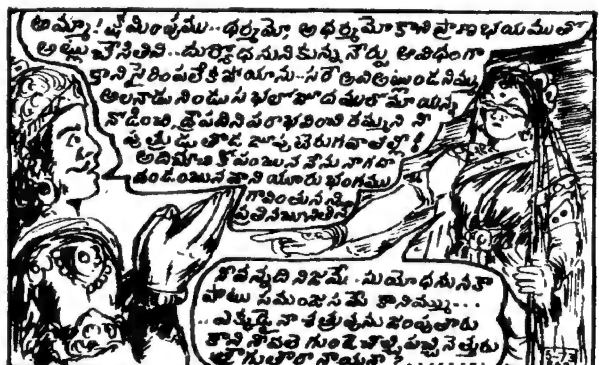 అమ్మా! క్షమింపుము.. ధర్మమో, అధర్మమో కాని ప్రాణభయముతో
అట్లు చేసితిని.. దుర్యోధనునికున్న నేర్పు ఆవిధంగా
కాని సైరింపలేక పోయాను.. సరే అవి అట్లుండనిమ్ము
ఆలనాడు నిండు సభలో జూదములో మాయన్న
నోడించి, ద్రౌపదిని పరాభవించి రమ్మని నీ
పుత్రుడు తొడ జూపుటెరుగవా తల్లీ!
అదిచూచి కోపంబున నేను నా గదా
దండంబున వాని యూరు భంగము
గావింతునని
ప్రతినబూనితిని
నీవన్నది నిజమే. సుయోధనునకా
పాటు సమంజసమే కానిమ్ము...
..ఎక్కడై నా శత్రువును జంపుతారు
కాని నీవలె గుండె చీల్చి పచ్చి నెత్తురు
త్రాగుతారా నాయనా ?........